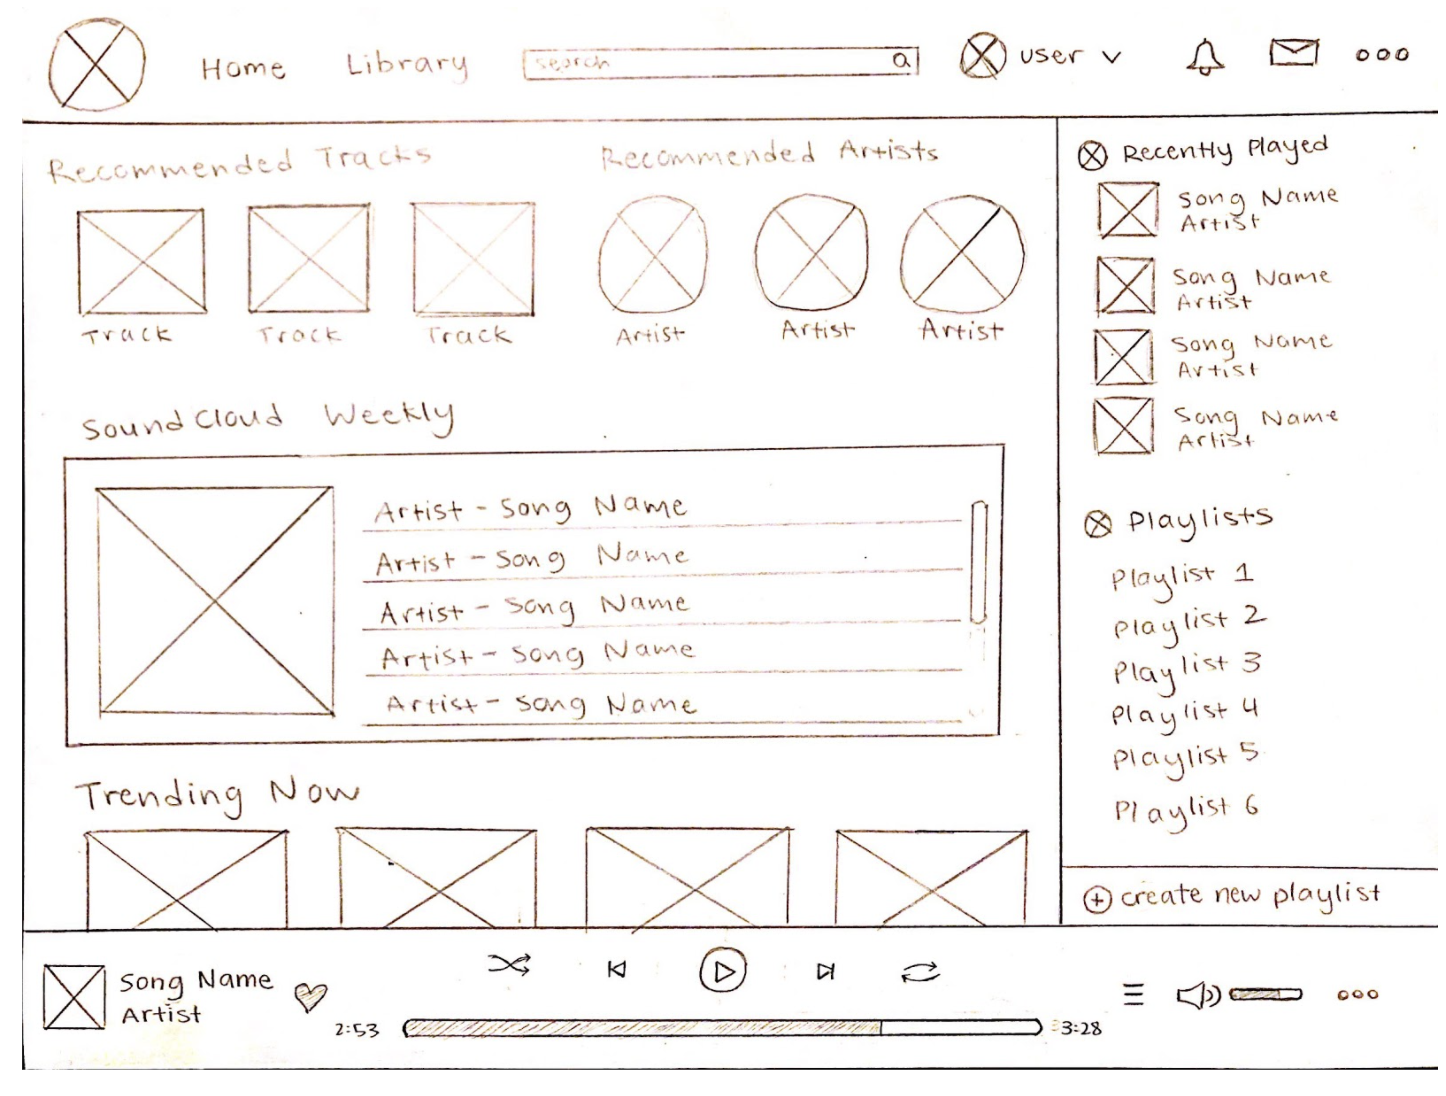 Home Library search user
Recommended Tracks
Track Track Track
Recommended Artists
Artist Artist Artist
SoundCloud Weekly
Artist - Song Name
Artist - Song Name
Artist - Song Name
Artist - Song Name
Artist - Song Name
Trending Now
Recently Played
Song Name
Artist
Song Name
Artist
Song Name
Artist
Song Name
Artist
Playlists
Playlist 1
Playlist 2
Playlist 3
Playlist 4
Playlist 5
Playlist 6
create new playlist
Song Name
Artist
2:53 3:28